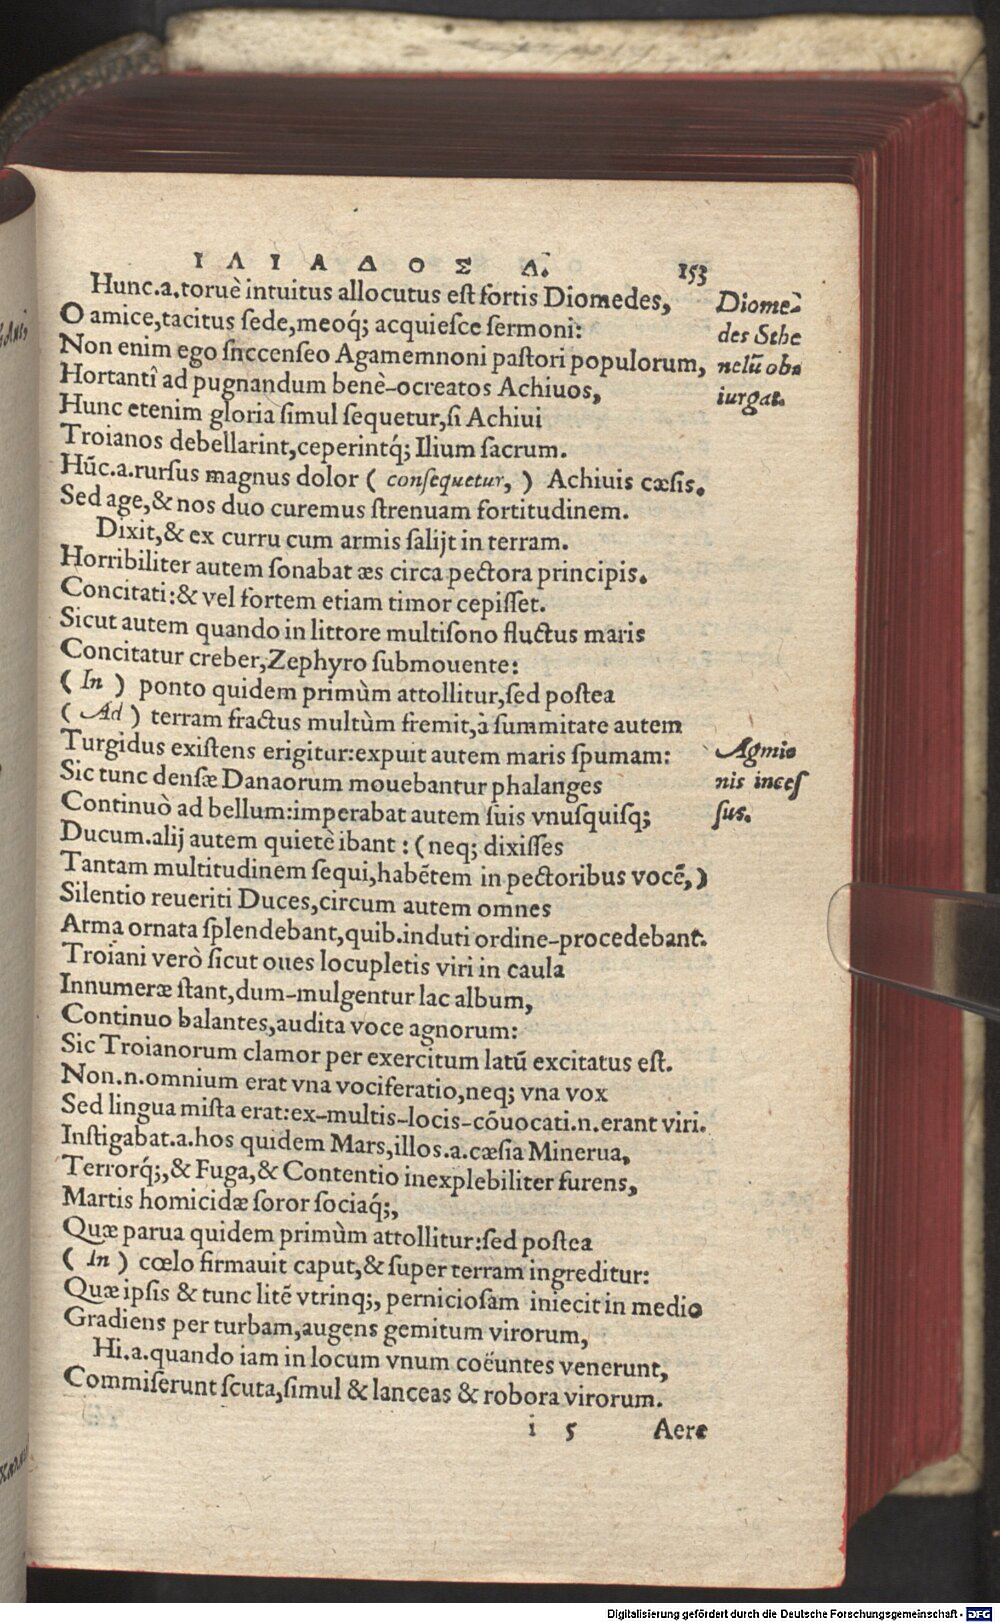 ΙΛΙΑΔΟΣ Δ. 153
Hunc.a.toruè intuitus allocutus est fortis Diomedes,
O amice,tacitus sede,meoq́; acquiesce sermoni:
Non enim ego snccenseo Agamemnoni pastori populorum,
Hortantî ad pugnandum benè-ocreatos Achiuos,
Hunc etenim gloria simul sequetur,si Achiui
Troianos debellarint,ceperintq́; Ilium sacrum.
Hũc.a.rursus magnus dolor ( consequetur, ) Achiuis cæsis.
Sed age,& nos duo curemus strenuam fortitudinem.
Dixit,& ex curru cum armis salijt in terram.
Horribiliter autem sonabat æs circa pectora principis.
Concitati:& vel fortem etiam timor cepisset.
Sicut autem quando in littore multisono fluctus maris
Concitatur creber,Zephyro submouente:
( In ) ponto quidem primùm attollitur,sed postea
( Ad ) terram fractus multùm fremit,à summitate autem
Turgidus existens erigitur:expuit autem maris spumam:
Sic tunc densæ Danaorum mouebantur phalanges
Continuò ad bellum:imperabat autem suis vnusquisq;
Ducum.alij autem quietè ibant : (neq; dixisses
Tantam multitudinem sequi,habẽtem in pectoribus vocẽ,)
Silentio reueriti Duces,circum autem omnes
Arma ornata splendebant,quib.induti ordine-procedebant.
Troiani verò sicut oues locupletis viri in caula
Innumeræ stant,dum-mulgentur lac album,
Continuo balantes,audita voce agnorum:
Sic Troianorum clamor per exercitum latũ excitatus est.
Non.n.omnium erat vna vociferatio,neq; vna vox
Sed lingua mista erat:ex-multis-locis-cõuocati.n.erant viri.
Instigabat.a.hos quidem Mars,illos.a.cæsia Minerua,
Terrorq́;,& Fuga,& Contentio inexplebiliter furens,
Martis homicidæ soror sociaq́;,
Quæ parua quidem primùm attollitur:sed postea
( In ) cœlo firmauit caput,& super terram ingreditur:
Quæ ipsis & tunc litẽ vtrinq;, perniciosam iniecit in medio
Gradiens per turbam,augens gemitum virorum,
Hi.a.quando iam in locum vnum coëuntes venerunt,
Commiserunt scuta,simul & lanceas & robora virorum.
i 5 Aere
Diome-
des Sthe
nelũ ob-
iurgat.
Agmi-
nis inces
sus.
Digitalisierung gefördert durch die Deutsche Forschungsgemeinschaft - DFG